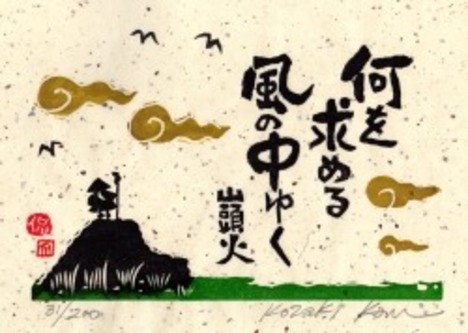 何を
求める
風の中ゆく
山頭火
31/200 Kozaki Kan